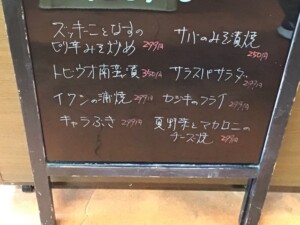 ズッキーニとなすの
ピリ辛みそ炒め 299円
サバのみそ漬焼
250円
トビウオ南蛮漬 350円
サラスパサラダ 299円
イワシの蒲焼 299円
カジキのフライ 299円
キャラぶき 299円
夏野菜とマカロニの
チーズ焼 299円